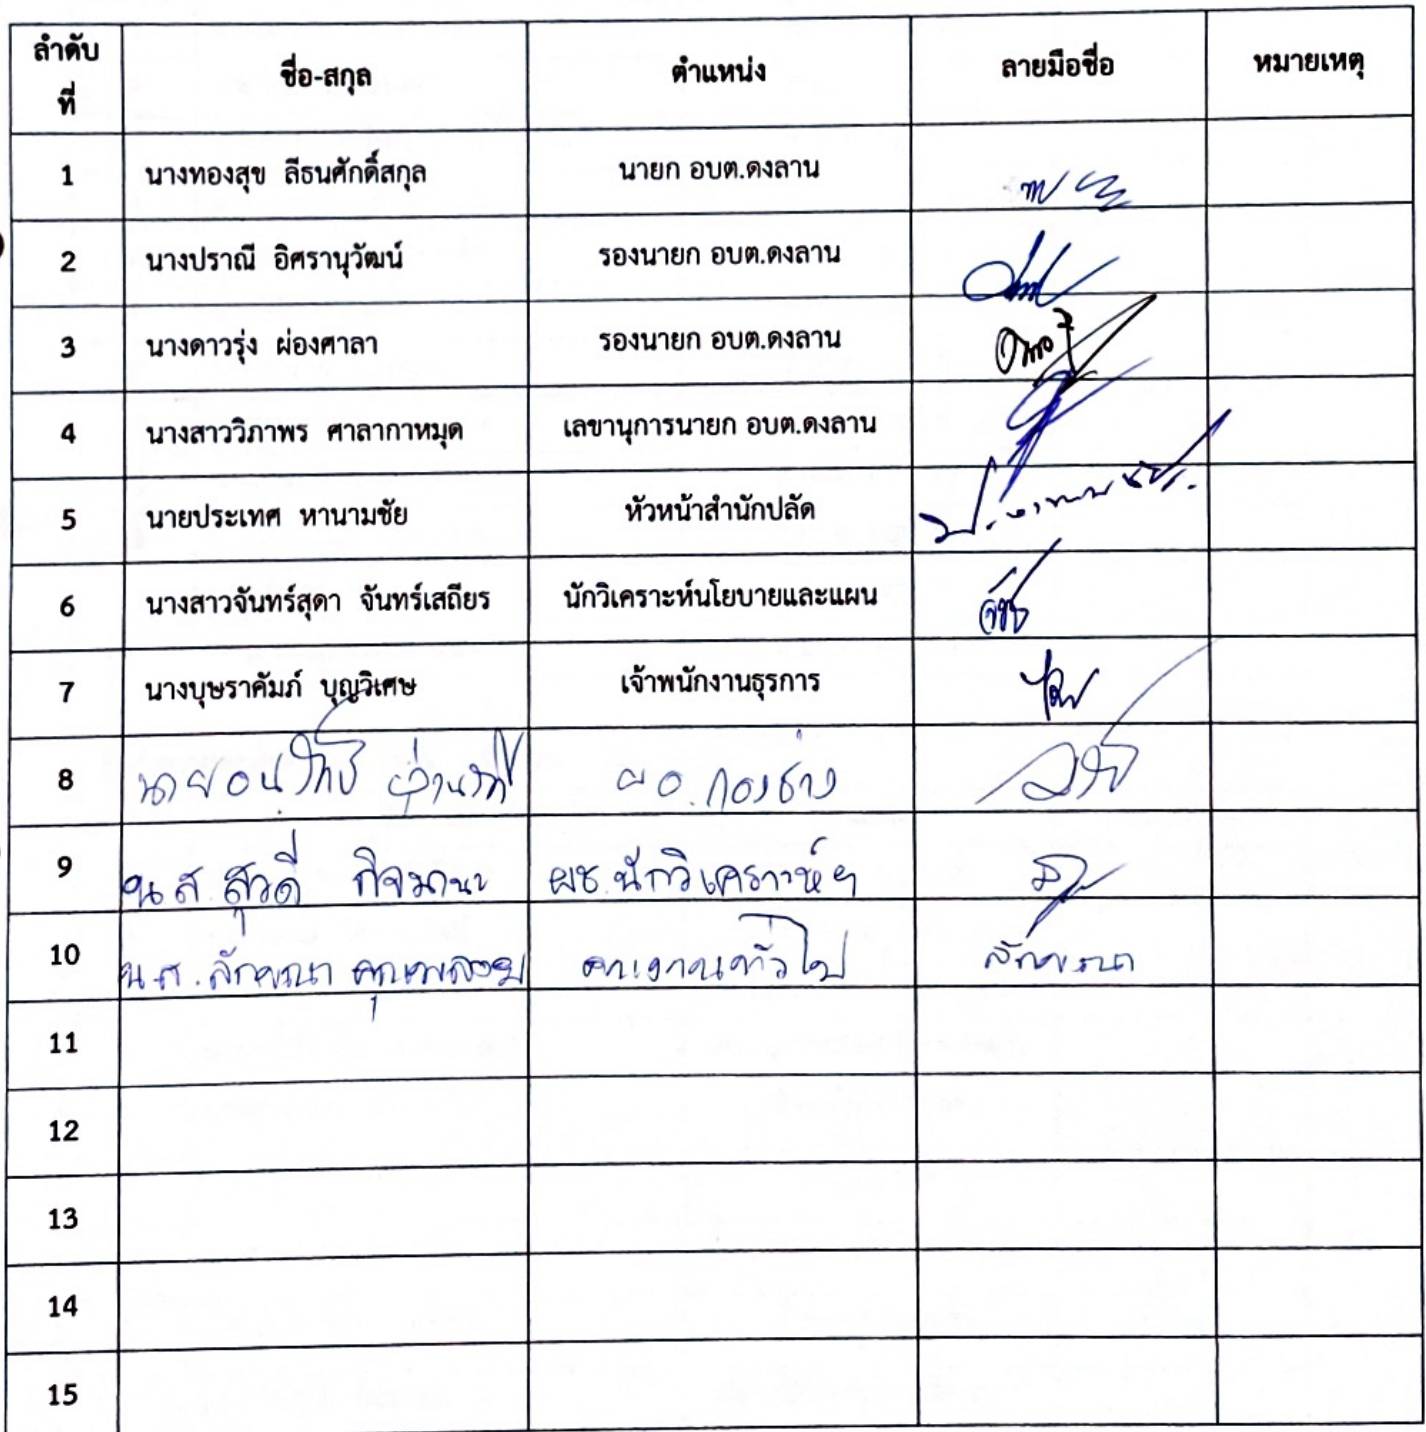 ลำดับที่ ชื่อ-สกุล ตำแหน่ง ลายมือชื่อ หมายเหตุ
1 นางทองสุข ลีธนศักดิ์สกุล นายก อบต.ดงลาน
2 นางปราณี อิศรานุวัฒน์ รองนายก อบต.ดงลาน
3 นางดาวรุ่ง ผ่องศาลา รองนายก อบต.ดงลาน
4 นางสาววิภาพร ศาลากาหมุด เลขานุการนายก อบต.ดงลาน
5 นายประเทศ หานามชัย หัวหน้าสำนักปลัด
6 นางสาวจันทร์สุดา จันทร์เสถียร นักวิเคราะห์นโยบายและแผน
7 นางบุษราคัมภ์ บุญวิเศษ เจ้าพนักงานธุรการ
8 ผอ.กองช่าง
9 น.ส.สุวดี ผช.นักวิเคราะห์ฯ
10 น.ส.ลักขณา คนงานทั่วไป ลักขณา
11
12
13
14
15